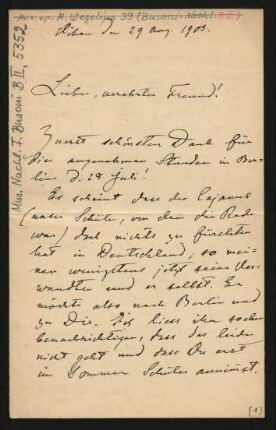 Mus. ep. M. Wegelius 39 (Busoni-Nachl. B II)
Mus. Nachl. F. Busoni B II, 5352
den 29 Aug. 1903.
Lieber, verehrter Freund!
Zuerst schönsten Dank für
die angenehmen Stunden in Ber-
lin d. 28 Juli!
Es scheint dass der Cajanus
(mein Schüler, von dem die Rede
war) doch nichts zu fürchten
hat in Deutschland; so mei-
nen wenigstens jetzt seine Ver-
wandten und er selbst. Er
möchte also nach Berlin und
zu Dir. Ich liess ihn
benachrichtigen, dass das leider
nicht geht und dass Du erst
im Sommer Schüler annimmst.
[1]